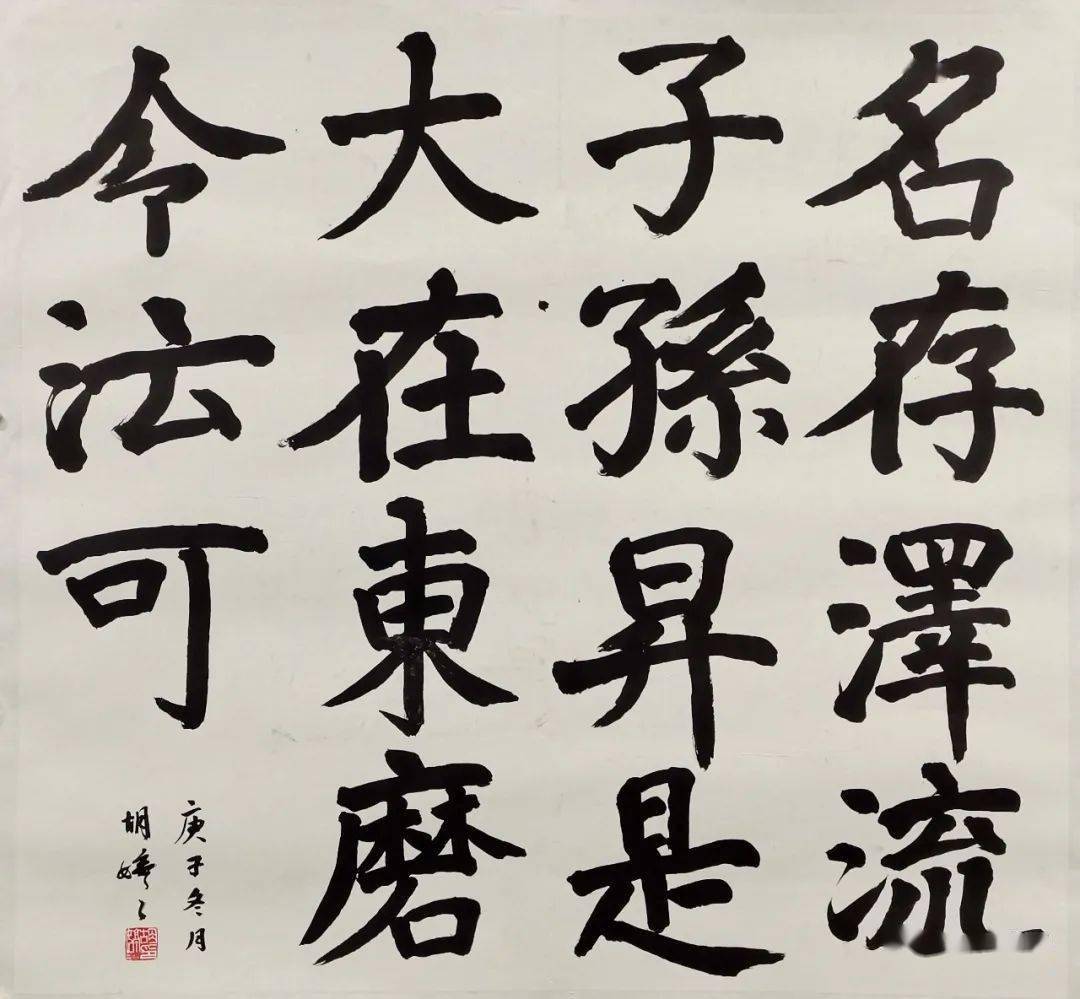 名存澤流
子孫昇是
大在東磨
令法可
庚子冬月
胡婷